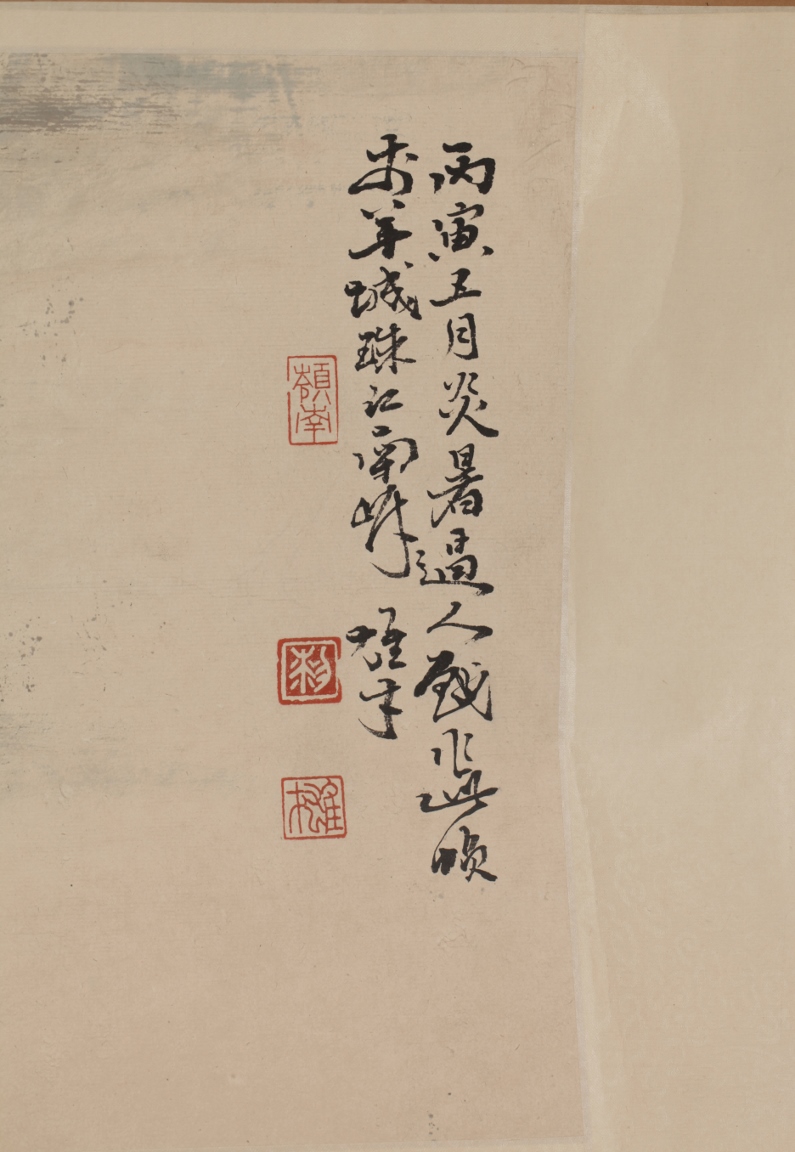 丙寅五月炎暑逼人戲作此幀
於羊城珠江南岸 雄才
嶺南
黎
雄才